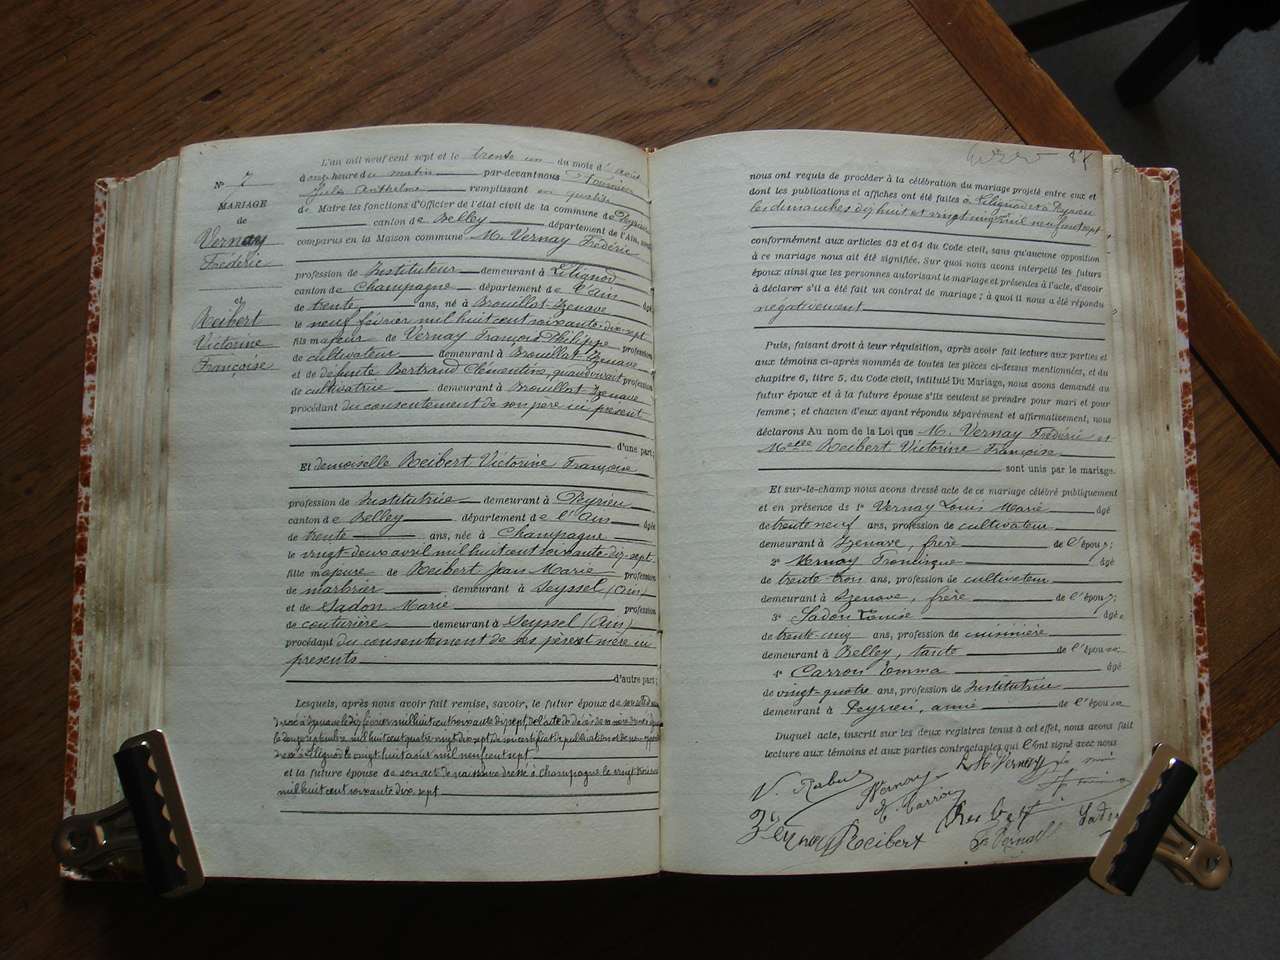 Nº 7
MARIAGE
de
Vernay
Frédéric
et
Reibert
Victorine
Françoise
L'an mil neuf cent sept et le trente un du mois d'août
à onze heure du matin par-devant nous Fournier
Jules Anthelme remplissant en qualité
de Maire les fonctions d'Officier de l'état civil de la commune de Peyrieu
canton de Belley département de l'Ain, sont
comparus en la Maison commune M. Vernay Frédéric
profession de Instituteur demeurant à Lilignod
canton de Champagne département de l'Ain âgé
de trente ans, né à Brouillat-Izenave
le neuf février mil huit cent soixante-dix-sept
fils majeur de Vernay François Philippe profession
de cultivateur demeurant à Brouillat-Izenave
et de défunte Bertrand Clémentine, quand vivait profession
de cultivatrice demeurant à Brouillat Izenave
procédant du consentement de son père ici présent
d'une part;
Et demoiselle Reibert Victorine Françoise
profession de Institutrice demeurant à Peyrieu
canton de Belley département de l'Ain âgée
de trente ans, née à Champagne
le vingt deux avril mil huit cent soixante-dix-sept
fille majeure de Reibert Jean Marie profession
de marbrier demeurant à Seyssel (Ain)
et de Sadon Marie profession
de couturière demeurant à Seyssel (Ain)
procédant du consentement de ses père et mère ici
présents
d'autre part;
Lesquels, après nous avoir fait remise, savoir, le futur époux de son acte de
dressé à Izenave le dix février mil huit cent soixante dix sept, de l'acte de décès de sa mère
le douze septembre mil huit cent quatre vingt dix sept du certificat de publication et de non
à Lilignod le vingt huit août mil neuf cent sept
et la future épouse de son acte de naissance dressé à Champagne le vingt trois
mil huit cent soixante dix sept
87
nous ont requis de procéder à la célébration du mariage projeté entre eux et
dont les publications et affiches ont été faites à Lilignod et à Peyrieu
les dimanches dix huit et vingt cinq août mil neuf cent sept
conformément aux articles 63 et 64 du Code civil, sans qu'aucune opposition
à ce mariage nous ait été signifiée. Sur quoi nous avons interpellé les futurs
époux ainsi que les personnes autorisant le mariage et présentes à l'acte, d'avoir
à déclarer s'il a été fait un contrat de mariage; à quoi il nous a été répondu
négativement
Puis, faisant droit à leur réquisition, après avoir fait lecture aux parties et
aux témoins ci-après nommés de toutes les pièces ci-dessus mentionnées, et du
chapitre 6, titre 5, du Code civil, intitulé Du Mariage, nous avons demandé au
futur époux et à la future épouse s'ils veulent se prendre pour mari et pour
femme; et chacun d'eux ayant répondu séparément et affirmativement, nous
déclarons Au nom de la Loi que M. Vernay Frédéric et
Melle Reibert Victorine Françoise
sont unis par le mariage.
Et sur-le-champ nous avons dressé acte de ce mariage célébré publiquement
et en présence de 1º Vernay Louis Marie âgé
de trente neuf ans, profession de cultivateur
demeurant à Izenave, frère de l'époux;
2º Vernay Francisque âgé
de trente-trois ans, profession de cultivateur
demeurant à Izenave, frère de l'époux;
3º Sadon Louise âgée
de trente cinq ans, profession de cuisinière
demeurant à Belley, tante de l'épouse
4º Carron Emma âgé
de vingt-quatre ans, profession de Institutrice
demeurant à Peyrieu, amie de l'épouse
Duquel acte, inscrit sur les deux registres tenus à cet effet, nous avons fait
lecture aux témoins et aux parties contractantes qui l'ont signé avec nous
V. Reibert
Vernay
L. M. Vernay
E. Carron
Reibert
Sadon
Vernay
Reibert
F. Vernay